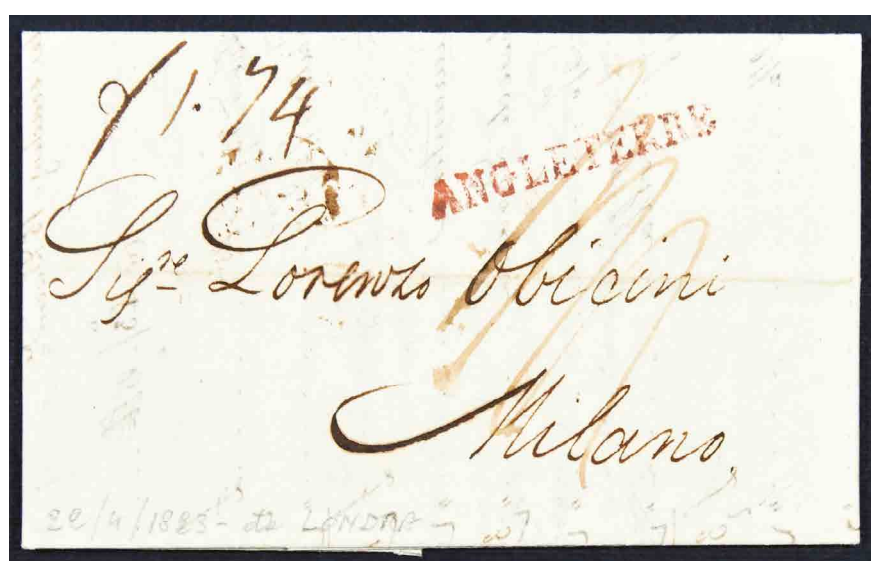 1.74
ANGLETERRE
Sigre Lorenzo Obicini
Milano
22/4/1823 - da LONDRA